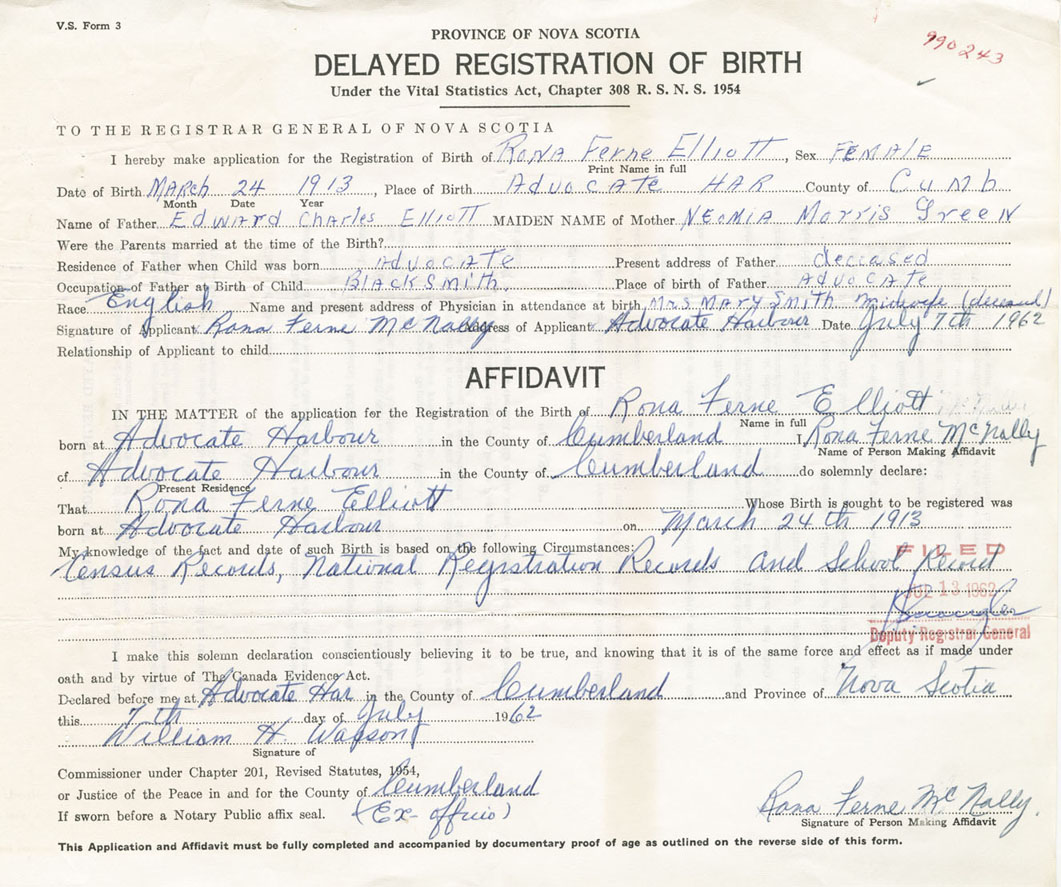 V.S. Form 3
PROVINCE OF NOVA SCOTIA
990243
DELAYED REGISTRATION OF BIRTH
Under the Vital Statistics Act, Chapter 308 R. S. N. S. 1954
TO THE REGISTRAR GENERAL OF NOVA SCOTIA
I hereby make application for the Registration of Birth of RONA Ferne Elliott, Sex FEMALE
Print Name in full
Date of Birth MARch 24 1913, Place of Birth Advocate HAR County of Cumb
Month Date Year
Name of Father Edward Charles Elliott MAIDEN NAME of Mother NEOMIA Morris Green
Were the Parents married at the time of the Birth?
Residence of Father when Child was born Advocate Present address of Father deceased
Occupation of Father at Birth of Child BlackSmith. Place of birth of Father Advocate
Race English Name and present address of Physician in attendance at birth Mrs MARY SMITH midwife (deceased)
Signature of Applicant Rona Ferne McNally Address of Applicant Advocate Harbour Date July 7th 1962
Relationship of Applicant to child
AFFIDAVIT
IN THE MATTER of the application for the Registration of the Birth of Rona Ferne Elliott McNally
Name in full
born at Advocate Harbour in the County of Cumberland I, Rona Ferne McNally
Name of Person Making Affidavit
of Advocate Harbour in the County of Cumberland do solemnly declare:
Present Residence
That Rona Ferne Elliott Whose Birth is sought to be registered was
born at Advocate Harbour on March 24th 1913
My knowledge of the fact and date of such Birth is based on the following Circumstances:
Census Records, National Registration Records and School Record
FILED
JUL 13 1962
Deputy Registrar General
I make this solemn declaration conscientiously believing it to be true, and knowing that it is of the same force and effect as if made under
oath and by virtue of The Canada Evidence Act.
Declared before me at Advocate Har in the County of Cumberland and Province of Nova Scotia
this 7th day of July 1962
William H. Watson
Signature of
Commissioner under Chapter 201, Revised Statutes, 1954,
or Justice of the Peace in and for the County of Cumberland
If sworn before a Notary Public affix seal. (Ex-officio)
Rona Ferne McNally.
Signature of Person Making Affidavit
This Application and Affidavit must be fully completed and accompanied by documentary proof of age as outlined on the reverse side of this form.